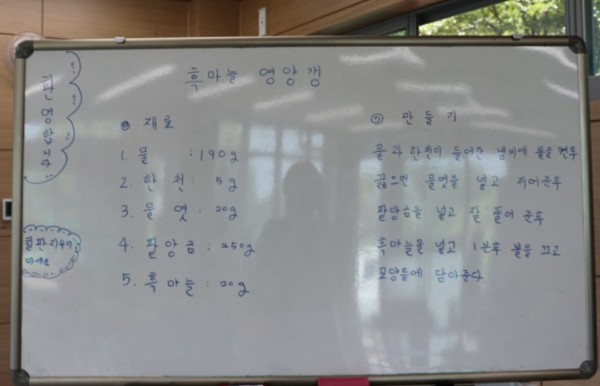 흑마늘 영양갱
◎ 재료
1. 물 : 190g
2. 한천 : 5g
3. 물엿 : 20g
4. 팥앙금 : 250g
5. 흑마늘 : 20g
◎ 만들기
물과 한천이 들어간 냄비에 불을 켠후
끓으면 물엿을 넣고 저어준후
팥앙금을 넣고 잘 풀어 준후
흑마늘을 넣고 1분후 불을 끄고
모양틀에 담아준다
칠판지우지
마세요